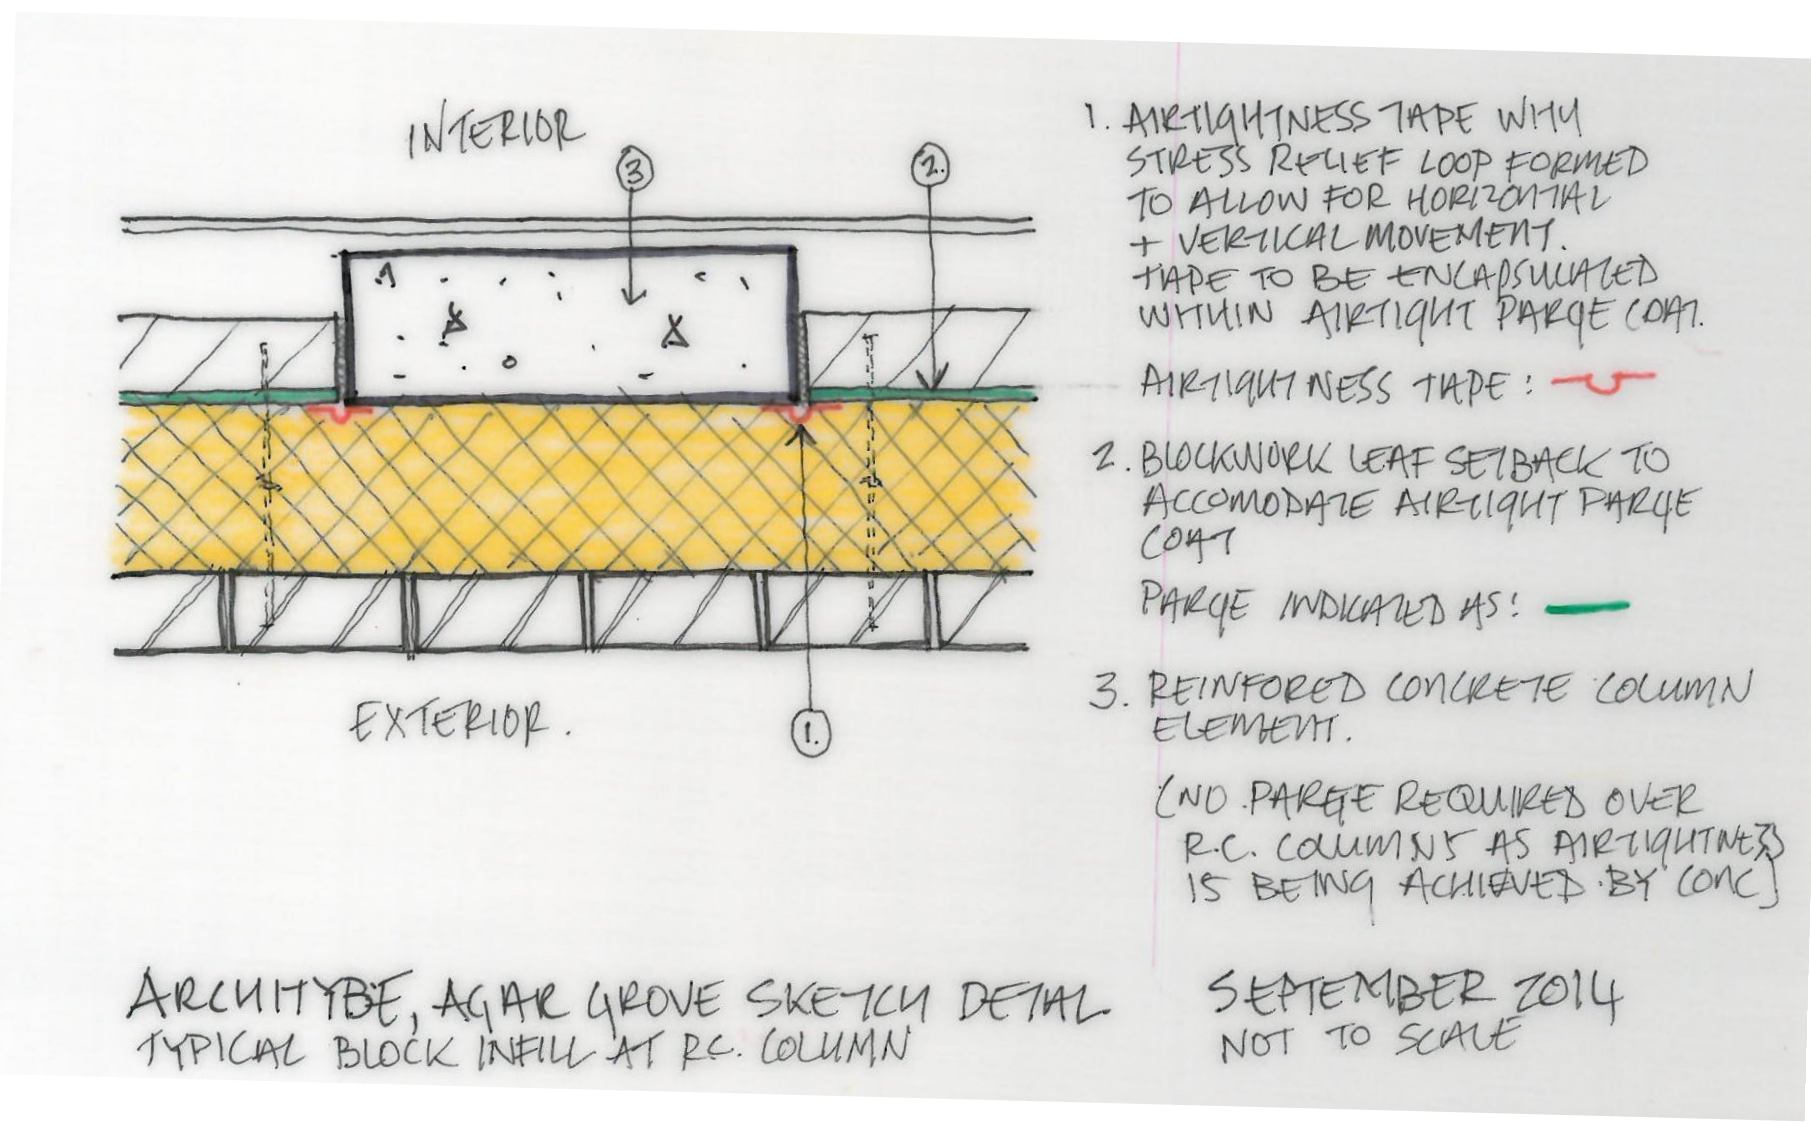 INTERIOR
3
2.
EXTERIOR.
1.
1. AIRTIGHTNESS TAPE WITH
STRESS RELIEF LOOP FORMED
TO ALLOW FOR HORIZONTAL
+ VERTICAL MOVEMENT.
TAPE TO BE ENCAPSULATED
WITHIN AIRTIGHT PARGE COAT.
AIRTIGHTNESS TAPE:
2. BLOCKWORK LEAF SETBACK TO
ACCOMODATE AIRTIGHT PARGE
COAT
PARGE INDICATED AS:
3. REINFORED CONCRETE COLUMN
ELEMENT.
(NO PARGE REQUIRED OVER
R.C. COLUMNS AS AIRTIGHTNESS
IS BEING ACHIEVED BY CONC)
ARCHITYBE, AGAR GROVE SKETCH DETAIL
TYPICAL BLOCK INFILL AT R.C. COLUMN
SEPTEMBER 2014
NOT TO SCALE